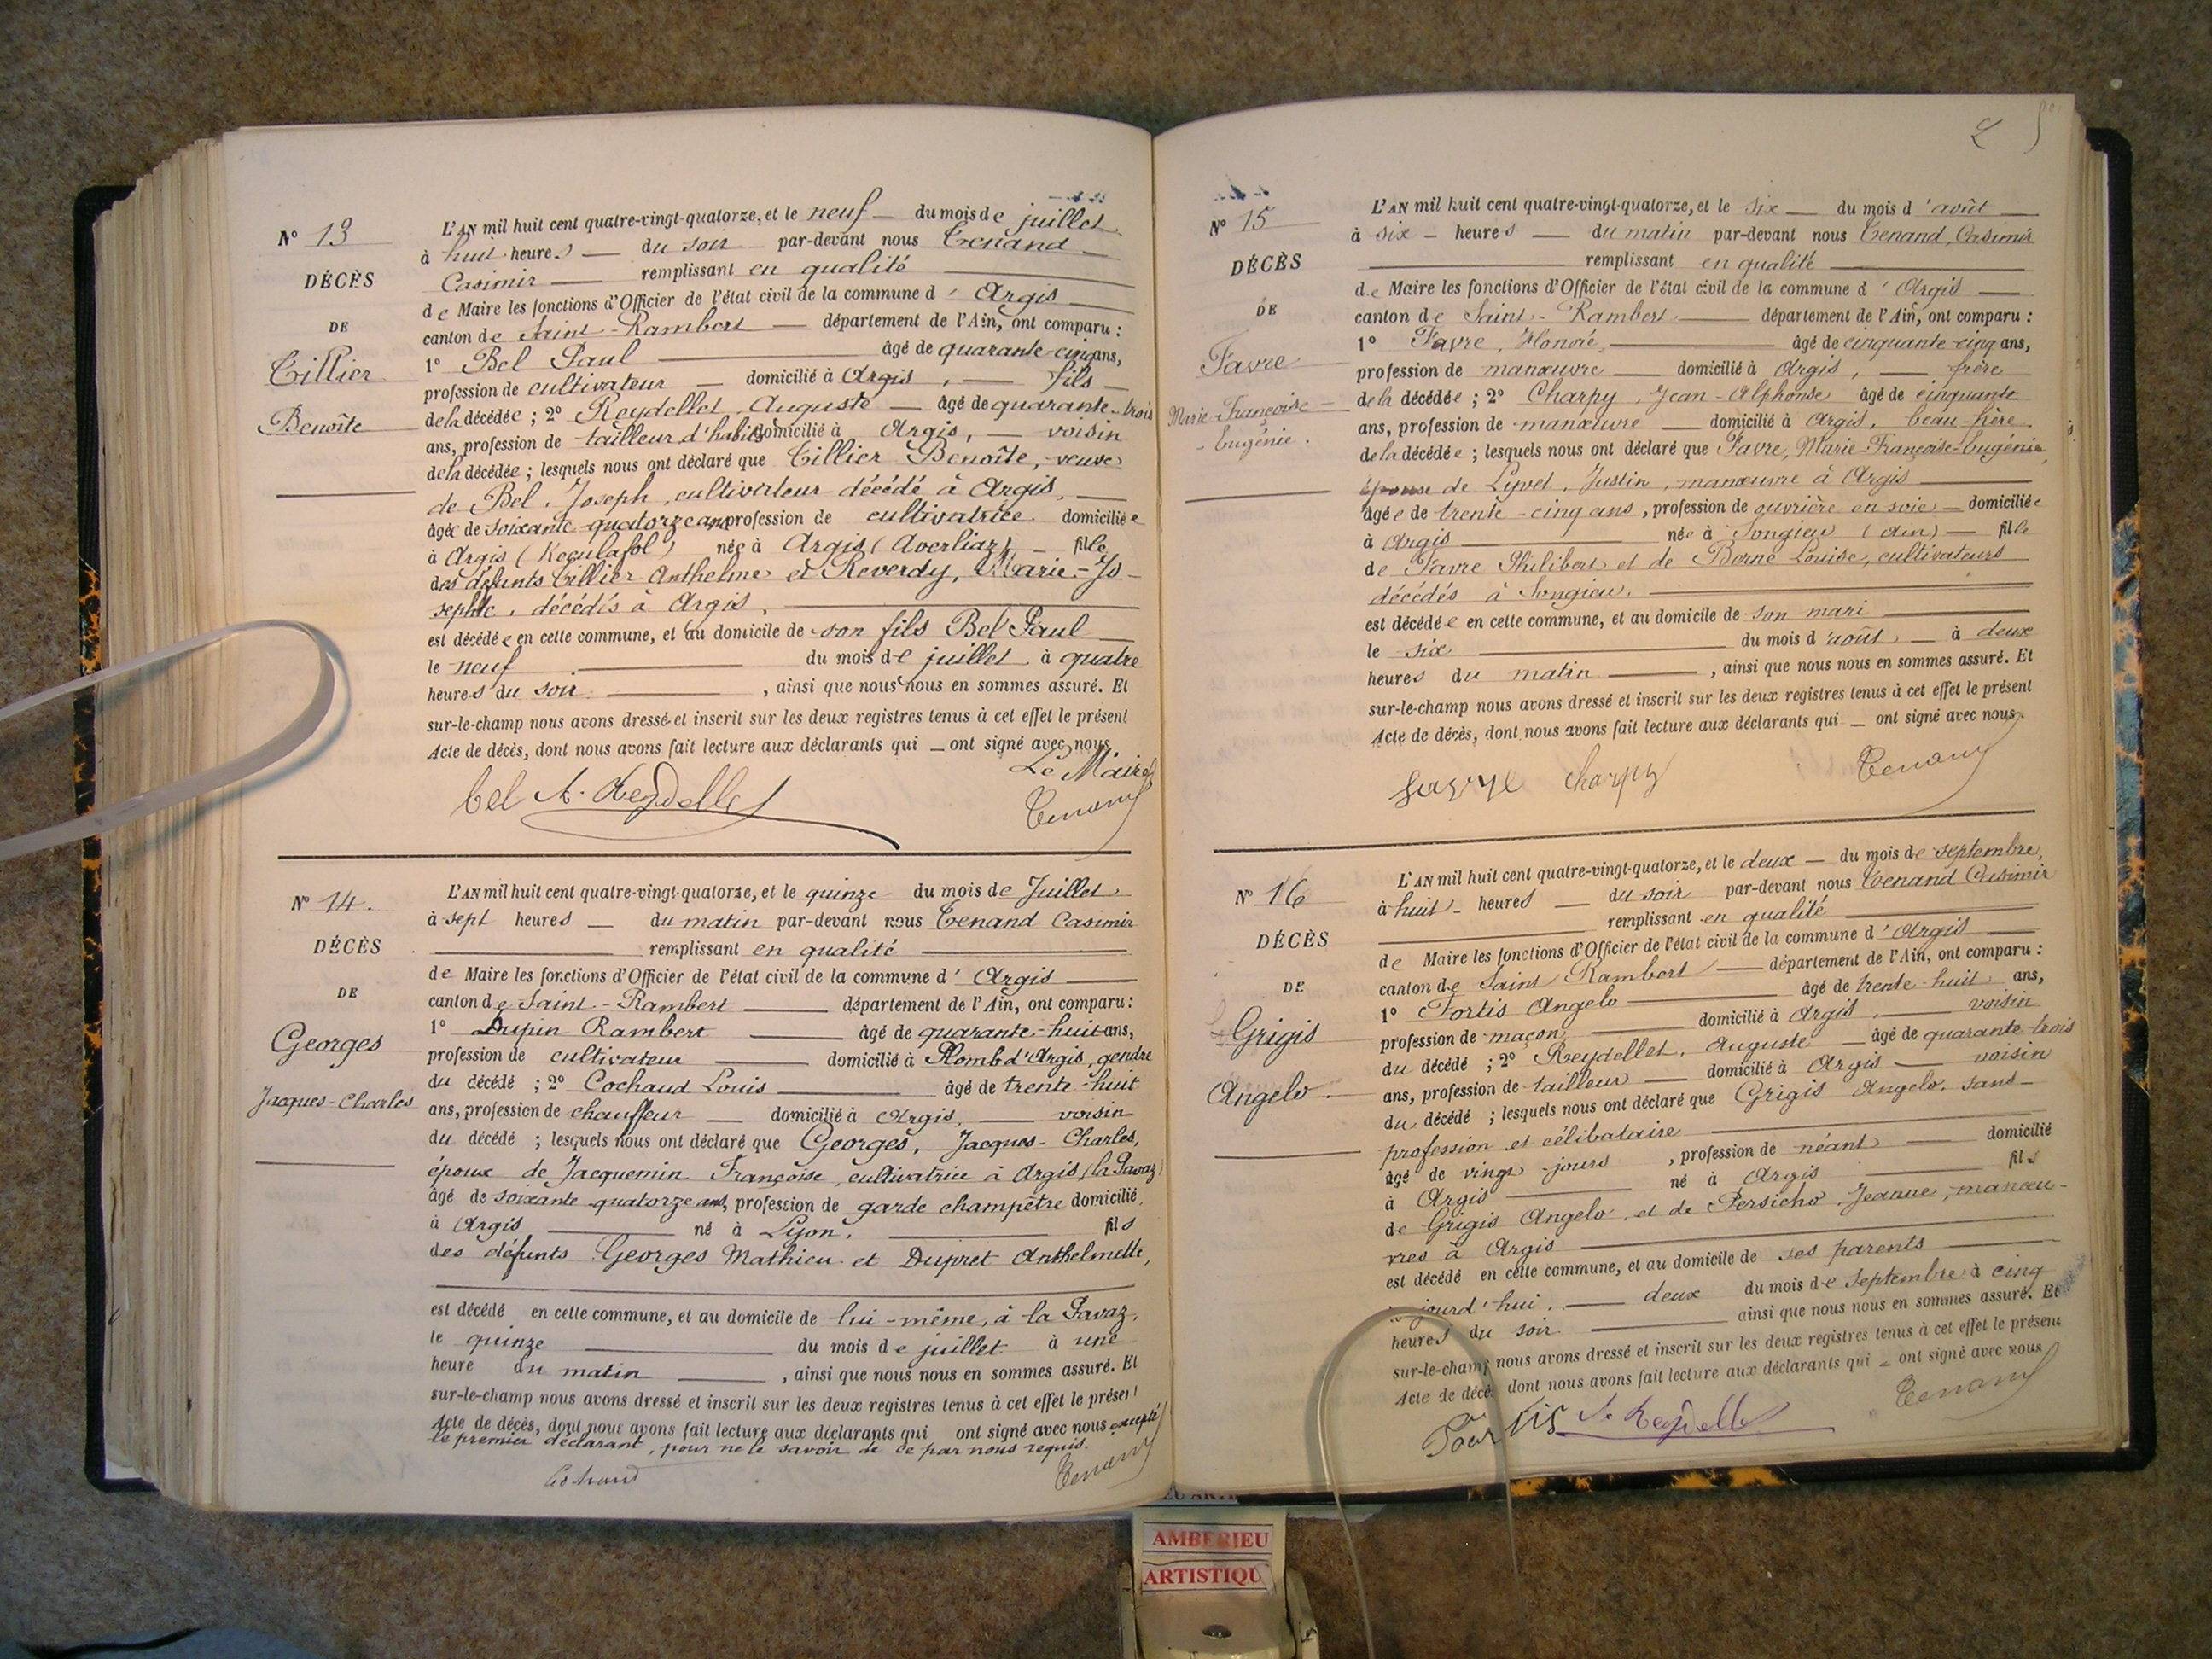 N° 13
DÉCÈS
DE
Tillier
Benoîte
L'AN mil huit cent quatre-vingt-quatorze, et le neuf du mois de juillet
à huit heures du soir par-devant nous Tenand
Casimir remplissant en qualité
de Maire les fonctions d'Officier de l'état civil de la commune d'Argis
canton de Saint-Rambert département de l'Ain, ont comparu :
1° Bel Paul âgé de quarante-cinq ans,
profession de cultivateur domicilié à Argis, fils
de la décédée ; 2° Reydellet Auguste âgé de quarante-trois
ans, profession de tailleur d'habits domicilié à Argis, voisin
de la décédée ; lesquels nous ont déclaré que Tillier Benoîte, veuve
de Bel, Joseph, cultivateur décédé à Argis,
âgée de soixante-quatorze ans profession de cultivatrice domiciliée
à Argis née à Argis (Averliaz), fille
des défunts Tillier Anthelme et Reverdy, Marie-Jo-
sephte, décédés à Argis,
est décédée en cette commune, et au domicile de son fils Bel Paul
le neuf du mois de juillet à quatre
heures du soir, ainsi que nous nous en sommes assuré. Et
sur-le-champ nous avons dressé et inscrit sur les deux registres tenus à cet effet le présent
Acte de décès, dont nous avons fait lecture aux déclarants qui ont signé avec nous.
Le Maire
bel A. Reydellet Tenand
N° 14.
DÉCÈS
DE
Georges
Jacques-Charles
L'AN mil huit cent quatre-vingt-quatorze, et le quinze du mois de Juillet
à sept heures du matin par-devant nous Tenand Casimir
remplissant en qualité
de Maire les fonctions d'Officier de l'état civil de la commune d'Argis
canton de Saint-Rambert département de l'Ain, ont comparu :
1° Dupin Rambert âgé de quarante-huit ans,
profession de cultivateur domicilié à Plomb d'Argis, gendre
du décédé ; 2° Cochaud Louis âgé de trente-huit
ans, profession de chauffeur domicilié à Argis, voisin
du décédé ; lesquels nous ont déclaré que Georges, Jacques-Charles,
époux de Jacquemin Françoise, cultivatrice à Argis (la Pavaz)
âgé de soixante-quatorze ans, profession de garde champêtre domicilié
à Argis né à Lyon, fils
des défunts Georges Mathieu et Dupret Anthelmette,
est décédé en cette commune, et au domicile de lui-même, à la Pavaz,
le quinze du mois de juillet à une
heure du matin, ainsi que nous nous en sommes assuré. Et
sur-le-champ nous avons dressé et inscrit sur les deux registres tenus à cet effet le présent
Acte de décès, dont nous avons fait lecture aux déclarants qui ont signé avec nous excepté
le premier déclarant, pour ne le savoir de ce par nous requis.
Cochaud Tenand
N° 15
DÉCÈS
DE
Favre
Marie-Françoise-
-Eugénie.
L'AN mil huit cent quatre-vingt-quatorze, et le six du mois d'août
à six heures du matin par-devant nous Tenand, Casimir
remplissant en qualité
de Maire les fonctions d'Officier de l'état civil de la commune d'Argis
canton de Saint-Rambert département de l'Ain, ont comparu :
1° Favre, Honoré, âgé de cinquante-cinq ans,
profession de manœuvre domicilié à Argis, frère
de la décédée ; 2° Charpy, Jean-Alphonse âgé de cinquante
ans, profession de manœuvre domicilié à Argis, beau-frère
de la décédée ; lesquels nous ont déclaré que Favre, Marie-Françoise-Eugénie,
épouse de Lyvet, Justin, manœuvre à Argis
âgée de trente-cinq ans, profession de ouvrière en soie domiciliée
à Argis née à Songieu (Ain) fille
de Favre Philibert et de Borne Louise, cultivateurs
décédés à Songieu.
est décédée en cette commune, et au domicile de son mari
le six du mois d'août à deux
heures du matin, ainsi que nous nous en sommes assuré. Et
sur-le-champ nous avons dressé et inscrit sur les deux registres tenus à cet effet le présent
Acte de décès, dont nous avons fait lecture aux déclarants qui ont signé avec nous.
Charpy Tenand
N° 16
DÉCÈS
DE
Grigis
Angelo
L'AN mil huit cent quatre-vingt-quatorze, et le deux du mois de septembre,
à huit heures du soir par-devant nous Tenand Casimir
remplissant en qualité
de Maire les fonctions d'Officier de l'état civil de la commune d'Argis
canton de Saint Rambert département de l'Ain, ont comparu :
1° Portis Angelo âgé de trente-huit ans,
profession de maçon domicilié à Argis, voisin
du décédé ; 2° Reydellet, Auguste âgé de quarante-trois
ans, profession de tailleur domicilié à Argis voisin
du décédé ; lesquels nous ont déclaré que Grigis Angelo, sans
profession et célibataire
âgé de vingt jours, profession de néant domicilié
à Argis né à Argis fils
de Grigis Angelo, et de Persicho, Jeanne, manœu-
vres à Argis
est décédé en cette commune, et au domicile de ses parents
aujourd'hui, deux du mois de septembre à cinq
heures du soir ainsi que nous nous en sommes assuré. Et
sur-le-champ nous avons dressé et inscrit sur les deux registres tenus à cet effet le présent
Acte de décès dont nous avons fait lecture aux déclarants qui ont signé avec nous
A. Reydellet Tenand
AMBERIEU
ARTISTIQU